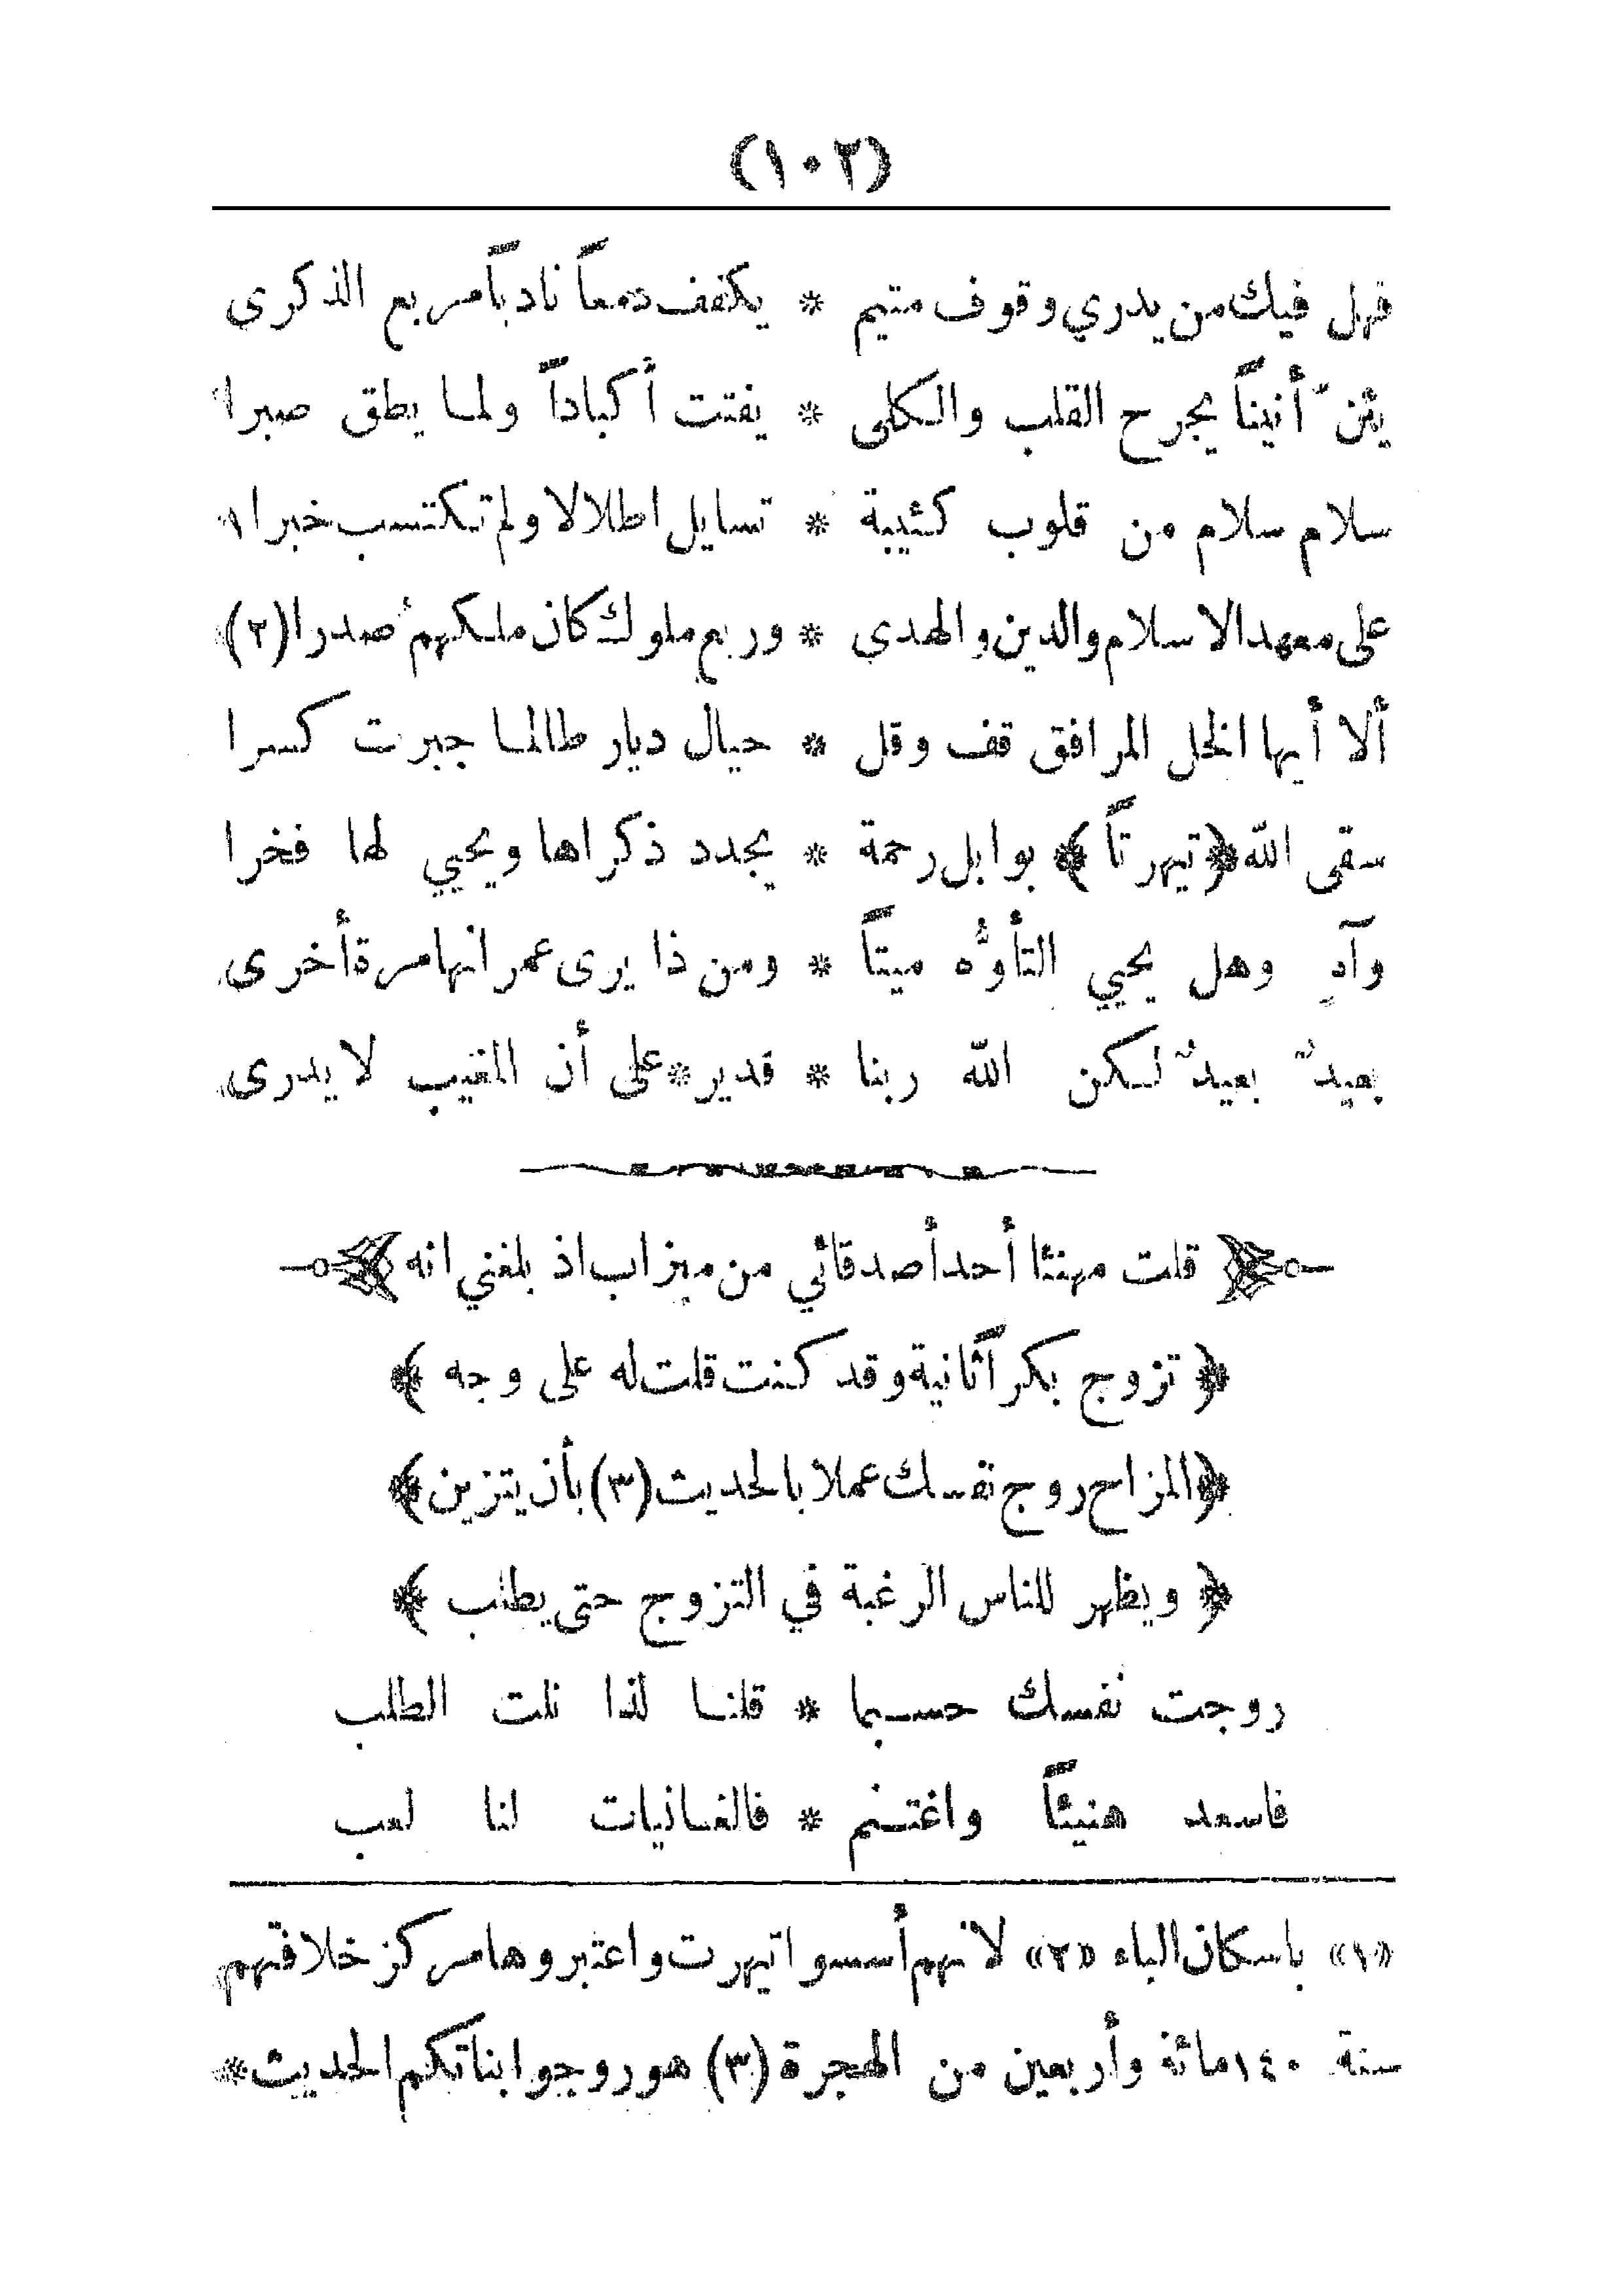 (١٠٢)
فهل فيك من يدري وقوف متيم * يكفف دمعاً نادباً مربع الذكرى
يئنّ أنيناً يجرح القلب والكلى * يفتت أكباداً ولما يطق صبرا
سلام سلام من قلوب كئيبة * تسايل اطلالا ولم تكتسب خبرا ١
على معهد الاسلام والدين والهدى * وربع ملوك كان ملكهمُ صدرا (٢)
ألا أيها الخل المرافق قف وقل * حيال ديار طالما جبرت كسرا
سقى اللّه ﴿تيهرتاً﴾ بوابل رحمة * يجدد ذكراها ويحيي لها فخرا
وآهٍ وهل يحيي التأوُّه ميتاً * ومن ذا يرى عمرانها مرة أخرى
بعيدٌ بعيدٌ لكن اللّه ربنا * قدير * على أن المغيب لا يدرى
قلت مهنئا أحد أصدقائي من ميزاب اذ بلغني انه
﴿تزوج بكراً ثانية وقد كنت قلت له على وجه﴾
﴿المزاح روج نفسك عملا بالحديث (٣) بأن يتزين﴾
﴿ويظهر للناس الرغبة في التزوج حتى يطلب﴾
روجت نفسك حسبما * قلنا لذا نلت الطلب
فاسعد هنيئاً واغتنم * فالغانيات لنا لعب
«١» باسكان الباء «٢» لانهم أسسوا تيهرت واعتبروها مركز خلافتهم
سنة ١٤٠ مائة وأربعين من الهجرة (٣) هو روجوا بناتكم الحديث *